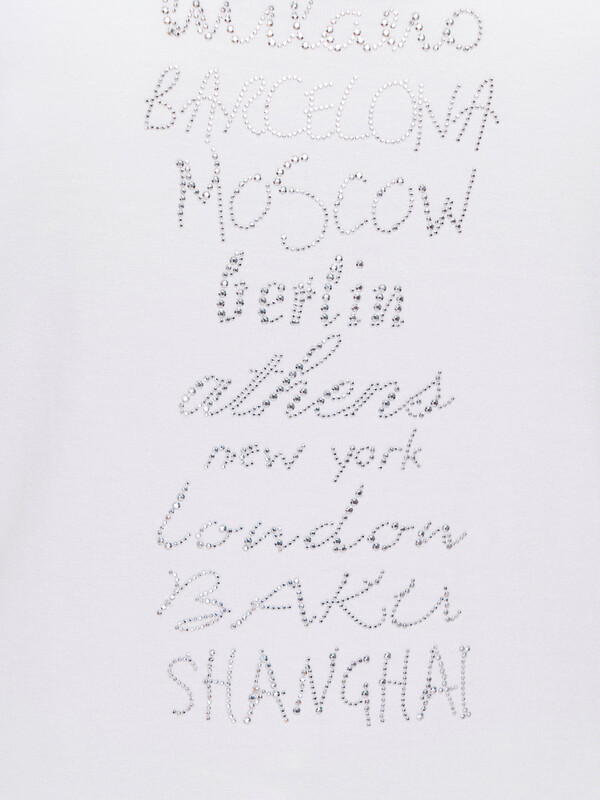 milano
BARCELONA
MOSCOW
berlin
athens
new york
london
BAKU
SHANGHAI